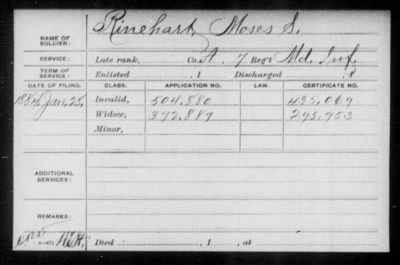 NAME OF SOLDIER: Rinehart, Moses S.
SERVICE: Late rank, Co. A. 7 Reg't Md. Inf.
TERM OF SERVICE: Enlisted , 1 Discharged , 1
DATE OF FILING. CLASS. APPLICATION NO. CERTIFICATE NO.
1884 Jan. 28, Invalid, 504.880 435.069
Widow, 372.889
Minor,
ADDITIONAL SERVICES:
REMARKS:
Died , 1 , at